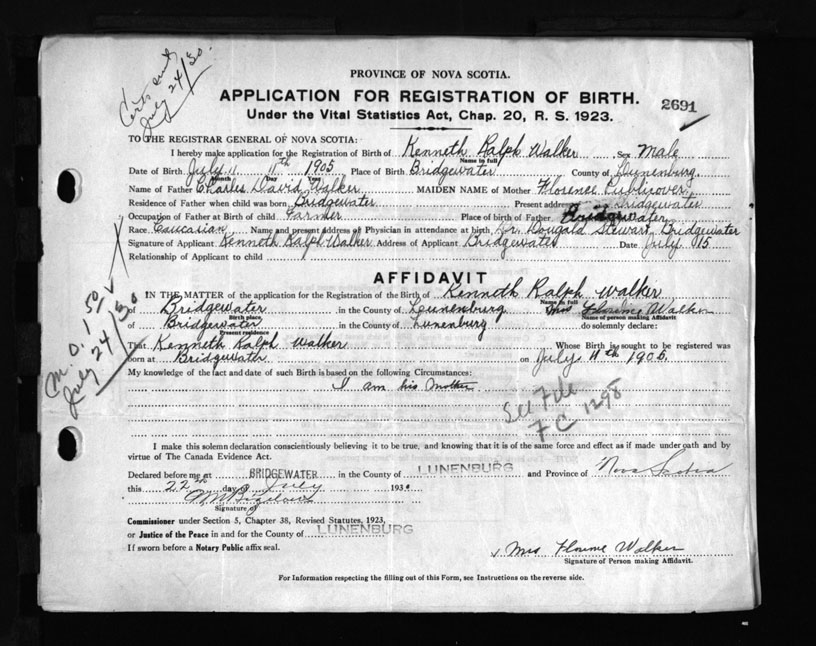 Certs sent
July 24/30
PROVINCE OF NOVA SCOTIA.
APPLICATION FOR REGISTRATION OF BIRTH.
2691
Under the Vital Statistics Act, Chap. 20, R. S. 1923.
TO THE REGISTRAR GENERAL OF NOVA SCOTIA:
I hereby make application for the Registration of Birth of Kenneth Ralph Walker Sex Male
Name in full
Date of Birth July 11 11th 1905 Place of Birth Bridgewater County of Lunenburg
Month Day Year
Name of Father Charles David Walker MAIDEN NAME of Mother Florence Publicover
Residence of Father when child was born Bridgewater Present address Bridgewater
Occupation of Father at Birth of child Farmer Place of birth of Father Bridgewater
Race Caucasian Name and present address of Physician in attendance at birth, Dr. Dougald Stewart, Bridgewater
Signature of Applicant Kenneth Ralph Walker Address of Applicant Bridgewater Date July 15
Relationship of Applicant to child
AFFIDAVIT
IN THE MATTER of the application for the Registration of the Birth of Kenneth Ralph Walker
Name in full
of Bridgewater in the County of Lunenburg Mrs Walker
Birth place Name of person making Affidavit
of Bridgewater in the County of Lunenburg do solemnly declare:
Present residence
That Kenneth Ralph Walker Whose Birth is sought to be registered was
born at Bridgewater on July 11th 1905.
My knowledge of the fact and date of such Birth is based on the following Circumstances:
I am his Mother
See File
FC 1298
M.O. 1.50
July 24/30
I make this solemn declaration conscientiously believing it to be true, and knowing that it is of the same force and effect as if made under oath and by
virtue of The Canada Evidence Act.
Declared before me at BRIDGEWATER in the County of LUNENBURG and Province of Nova Scotia
this 22nd day July 1930
Signature of
Commissioner under Section 5, Chapter 38, Revised Statutes, 1923,
or Justice of the Peace in and for the County of LUNENBURG
If sworn before a Notary Public affix seal.
Mrs Walker
Signature of Person making Affidavit.
For Information respecting the filling out of this Form, see Instructions on the reverse side.